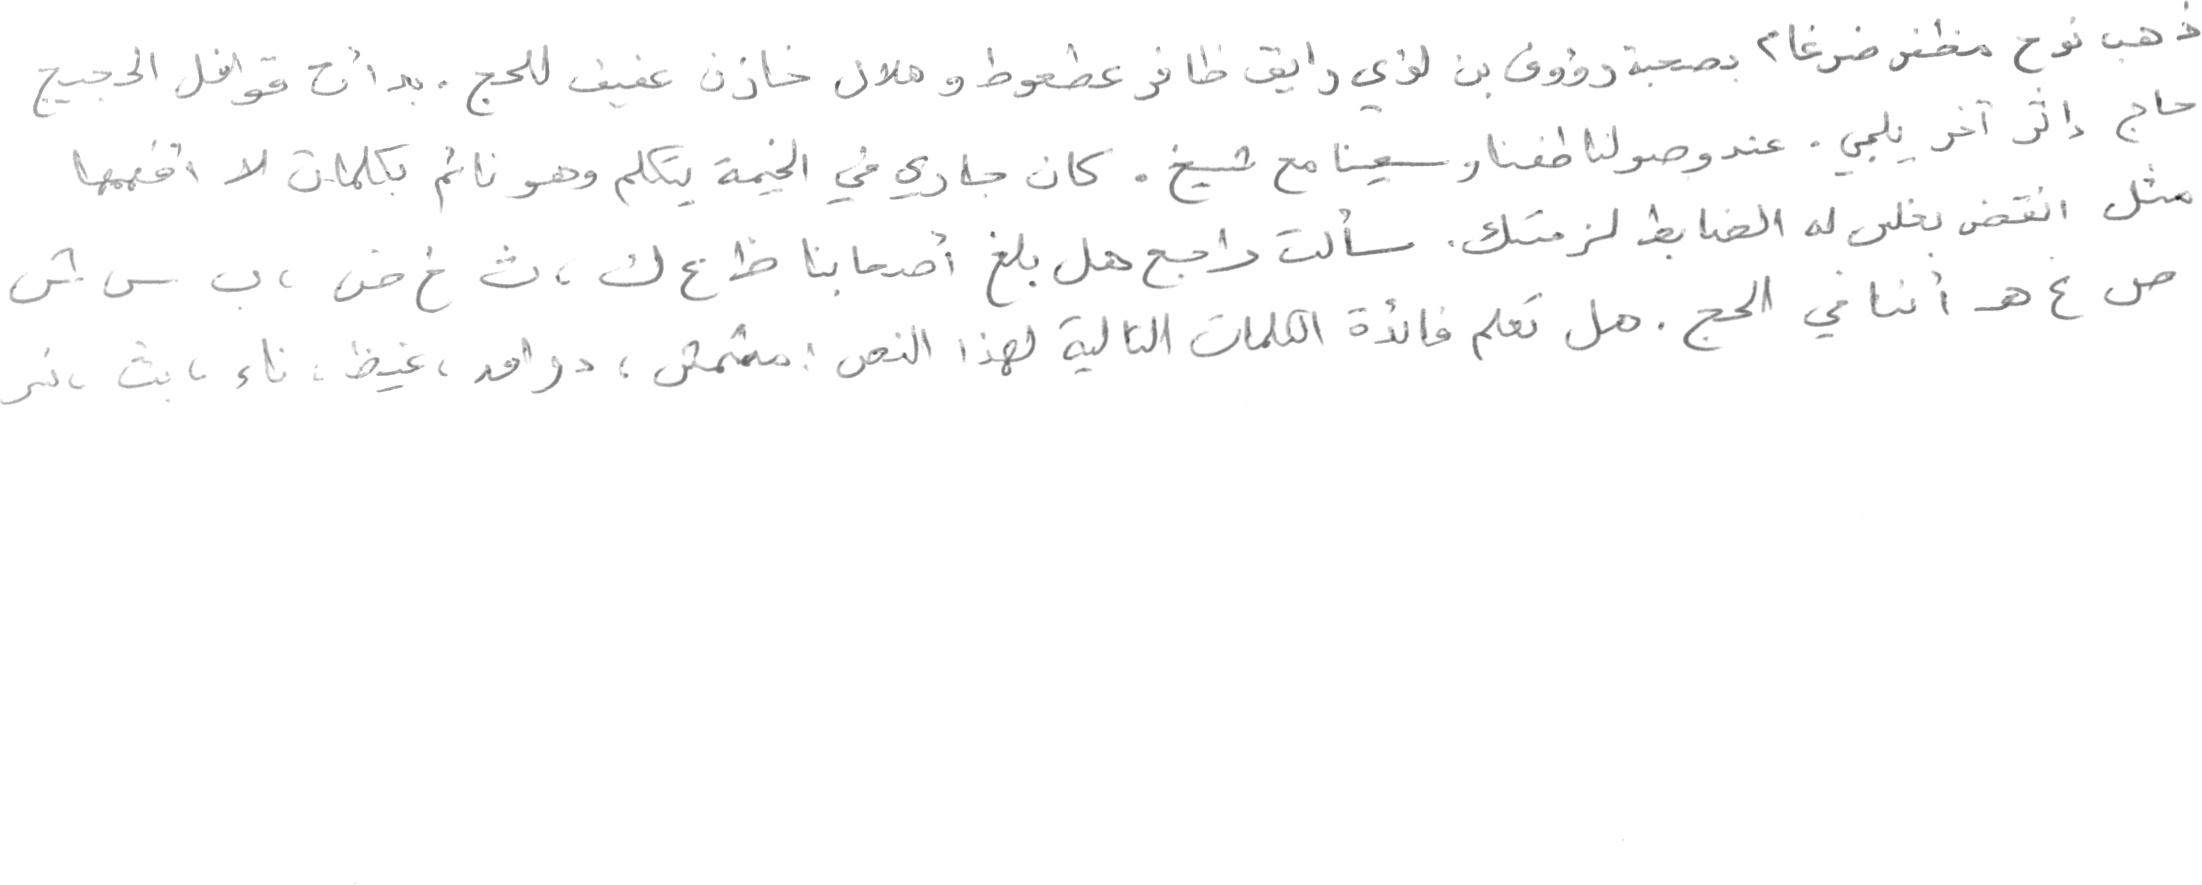 ذهب نوح مظفر ضرغام بصحبة رؤوف بن لؤي رايق ظافر عطعوط و هلال خازن عفيف للحج . بدأت قوافل الحجيج
حاج إثر آخر يلبي . عند وصولنا طفنا و سعينا مع شيخ . كان جاري في الخيمة يتكلم وهو نائم بكلمات لا أفهمها
مثل انقض بغل له الضابط لزمتك . سألت راجح هل بلغ أصحابنا ظ ع ك ، ث غ ض ، ب س ش
ص ع هـ أننا في الحج . هل تعلم فائدة الكلمات التالية لهذا النص : مشمش ، دوافد ، غيظ ، ناء ، بث ، نر